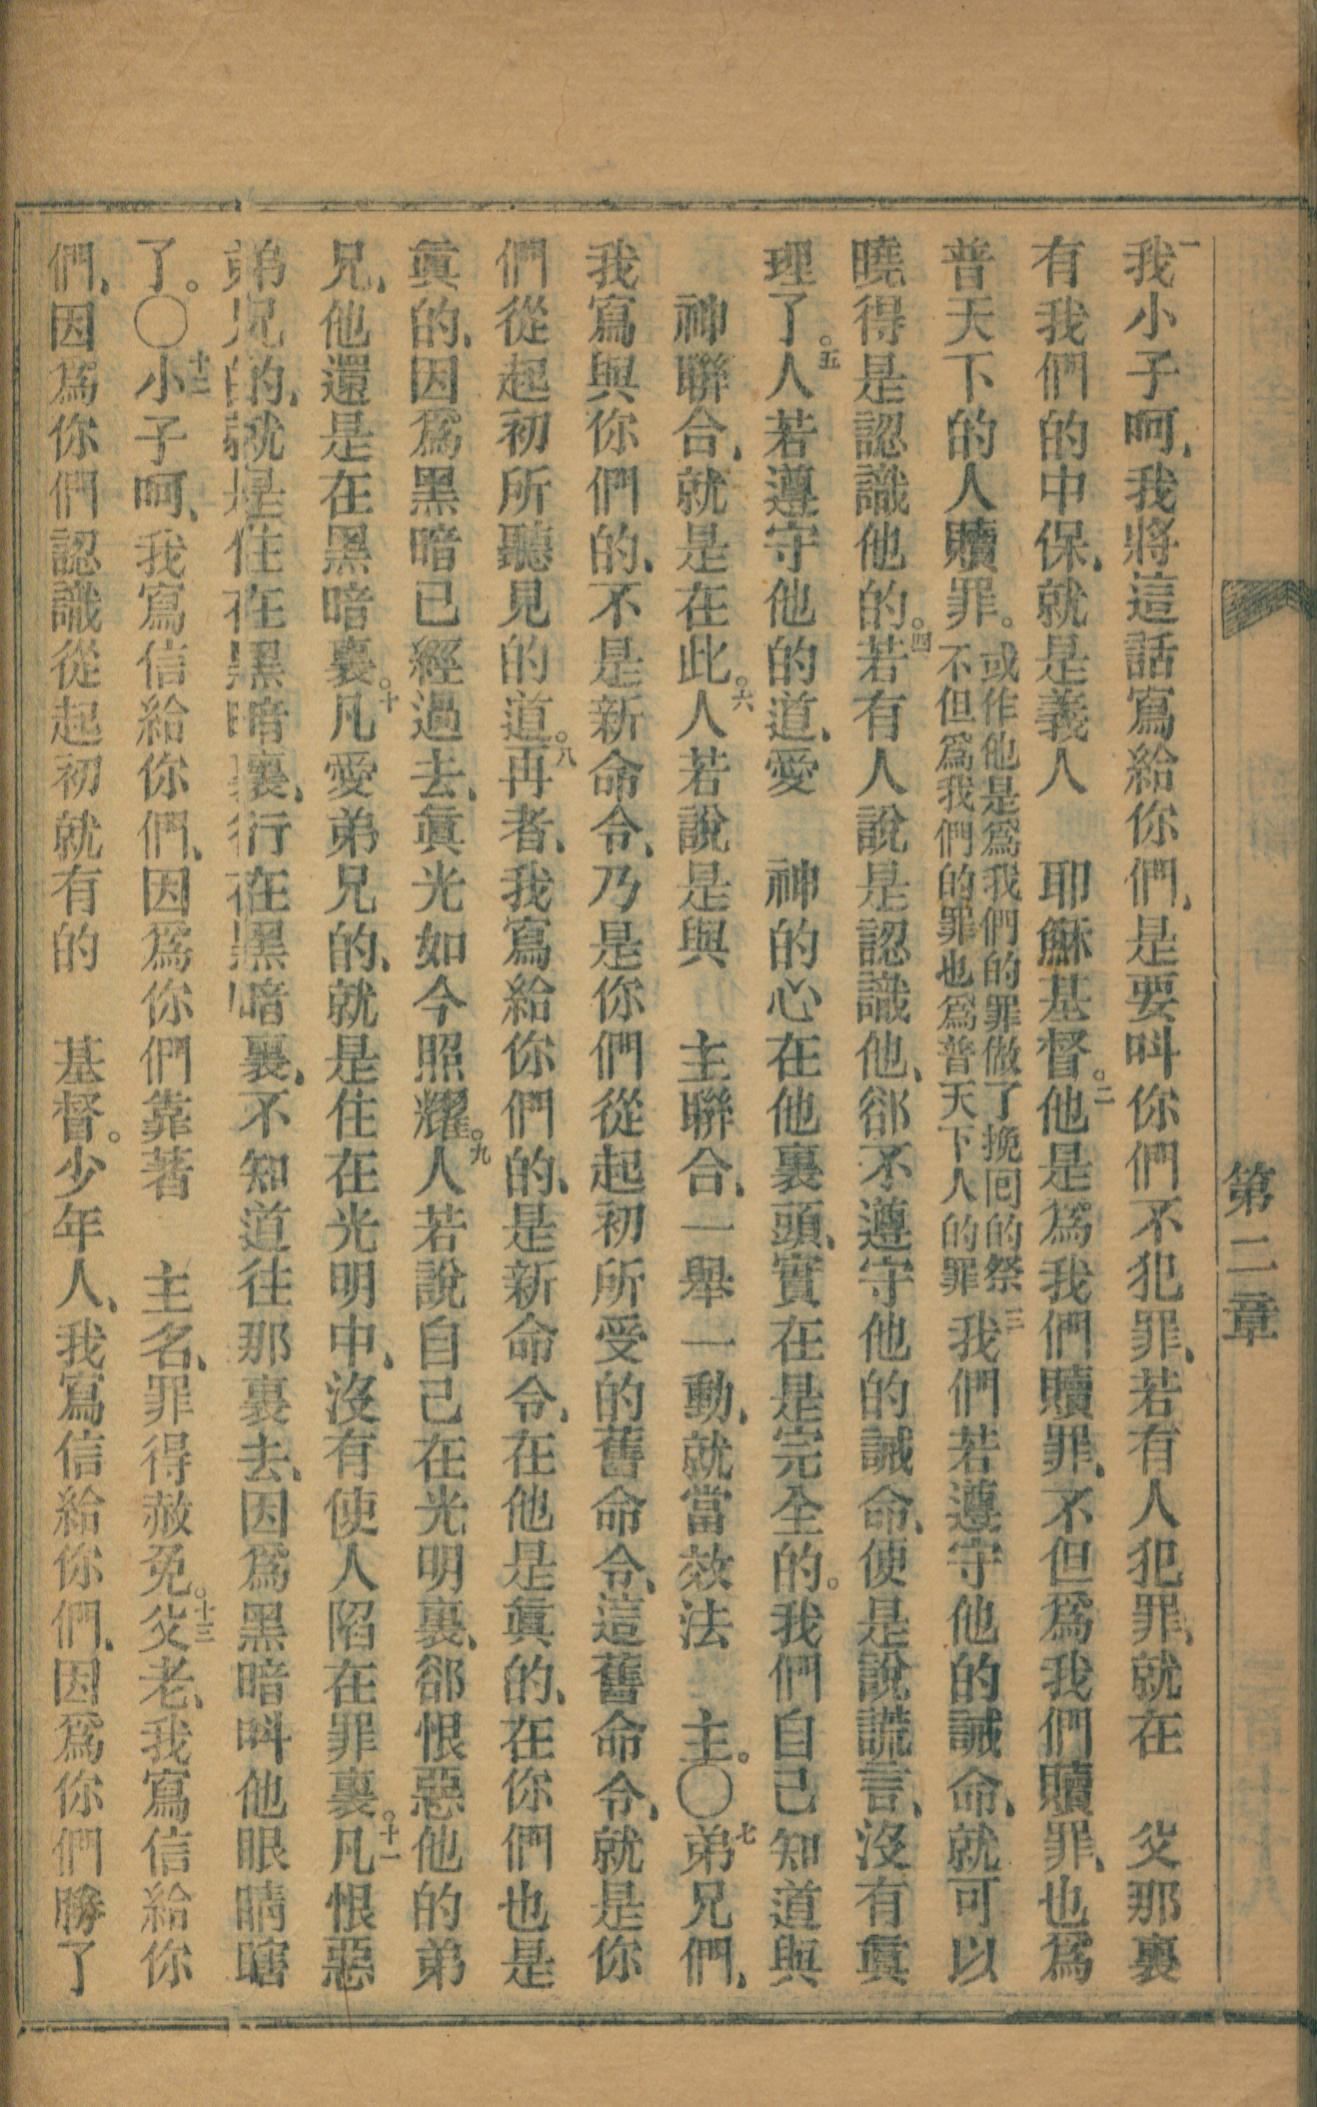 第二章
一我小子呵、我將這話寫給你們、是要呌你們不犯罪、若有人犯罪、就在　父那裏
有我們的中保、就是義人　耶穌基督。二他是爲我們贖罪、不但爲我們贖罪、也爲
普天下的人贖罪。或作他是爲我們的罪做了挽回的祭不但爲我們的罪也爲普天下人的罪三我們若遵守他的誡命、就可以
曉得是認識他的。四若有人說是認識他、郤不遵守他的誡命、便是說謊言、沒有眞
理了。五人若遵守他的道、愛　神的心在他裏頭、實在是完全的。我們自己知道與
　神聯合、就是在此。六人若說是與　主聯合、一舉一動、就當效法　主。〇七弟兄們、
我寫與你們的、不是新命令、乃是你們從起初所受的舊命令、這舊命令、就是你
們從起初所聽見的道。八再者、我寫給你們的、是新命令、在他是眞的、在你們也是
眞的、因爲黑暗已經過去、眞光如今照耀。九人若說自己在光明裏、郤恨惡他的弟
兄、他還是在黑暗裏。十凡愛弟兄的、就是住在光明中、沒有使人陷在罪裏。十一凡恨惡
弟兄的、就是住在黑暗裏、行在黑暗裏、不知道往那裏去、因爲黑暗呌他眼睛瞎
了。〇十二小子呵、我寫信給你們、因爲你們靠著　主名、罪得赦免。十三父老、我寫信給你
們、因爲你們認識從起初就有的　基督。少年人、我寫信給你們、因爲你們勝了